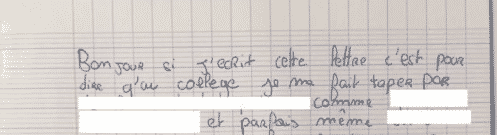 Bonjour si j'ecrit cette lettre c'est pour
dire qu'au college je me fait taper par
comme
et parfois même